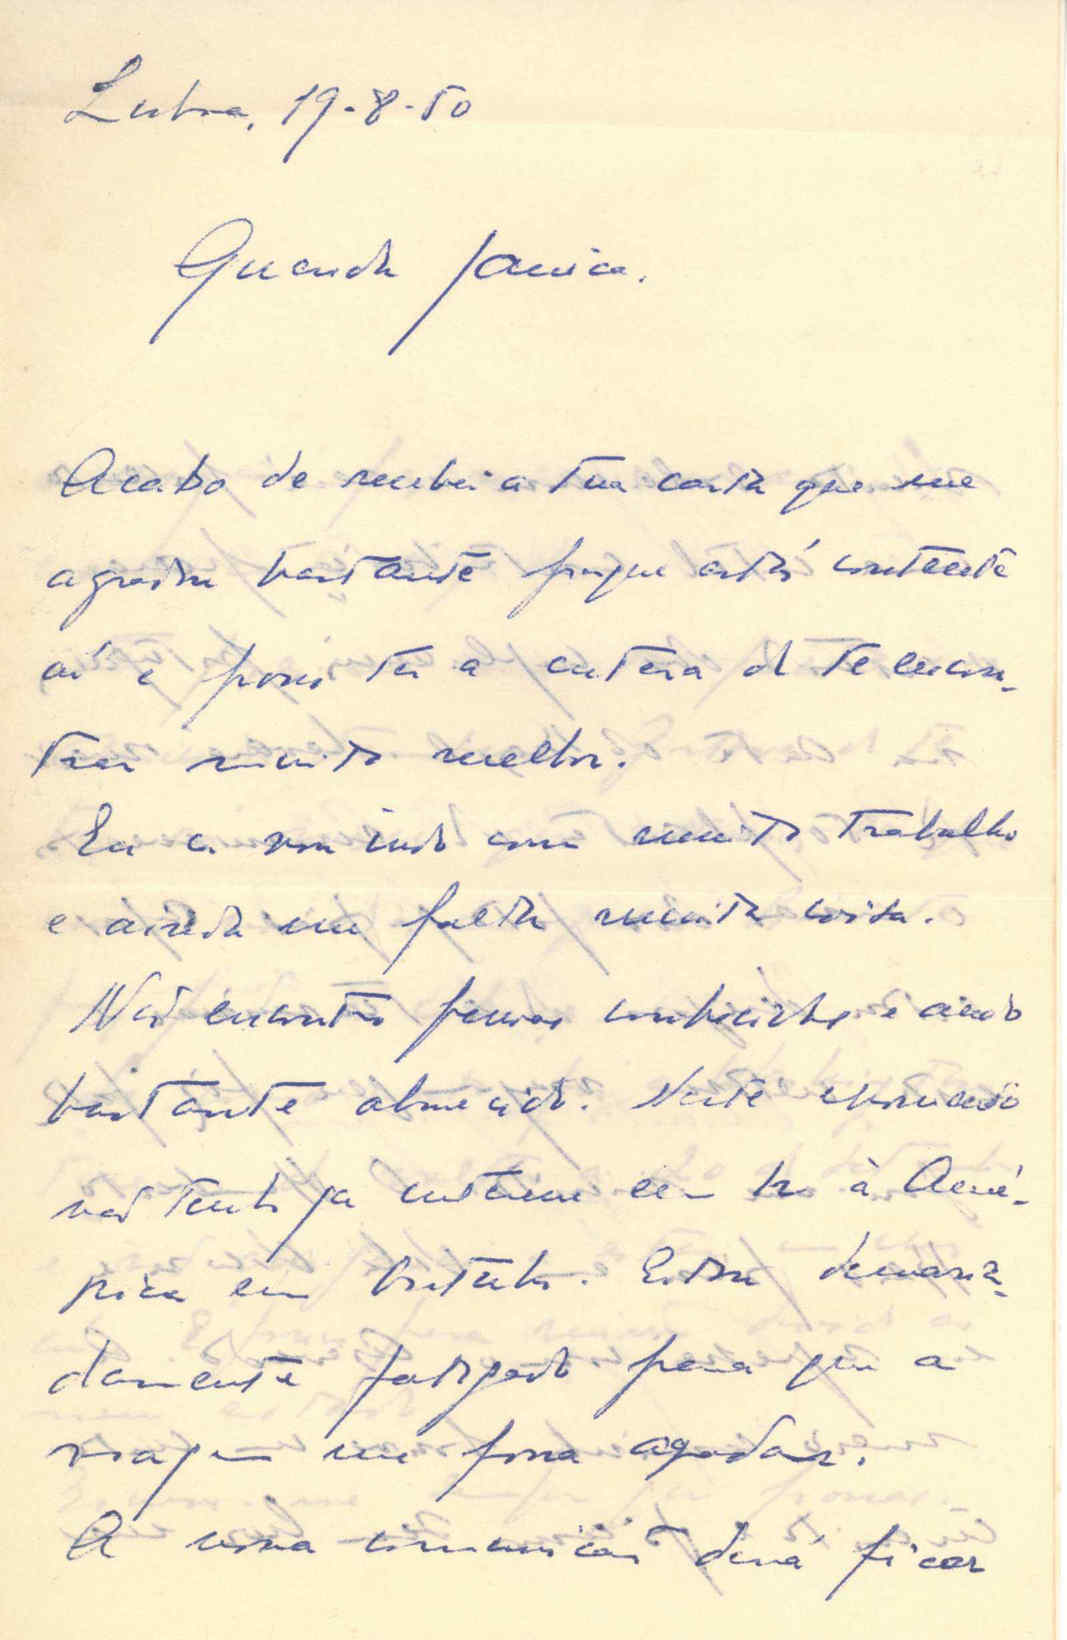 Lisboa, 19-8-50
Querida Janica.
Acabo de receber a tua carta que me
agradou bastante porque estás contente
aí e posso ter a certeza de te encon-
trar muito melhor.
Eu cá vou indo com muito trabalho
e ainda me falta muita coisa.
Não encontro pessoas conhecidas e ando
bastante aborrecido. Neste momento
não tenho já interesse em ir à Amé-
rica em Outubro. Estou demasia-
damente fatigado para que a
viagem me possa agradar.
A nossa comunicação deverá ficar